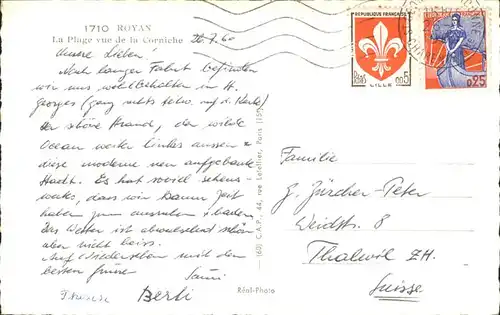 1710 ROYAN
La Plage vue de la Corniche 26.7.60
Unsere Lieben!
Nach langer Fahrt befinden
wir uns wohlbehalten in St.
Georges (ganz rechts schw. auf d. Karte)
der schöne Strand, der wilde
Ocean weiter links aussen &
diese moderne neu aufgebaute
Stadt. Es hat soviel sehens-
werte, dass wir kaum Zeit
haben zum ausruhen & baden.
Das Wetter ist abwechselnd schön
aber nicht heiss.
Auf Wiedersehen mit den
besten Grüsse
Berti
REPUBLIQUE FRANÇAISE
0,05
LILLE
0,25
(60) C.A.P., 44, rue Letellier, Paris (15e)
Réal-Photo
Familie
G. Zürcher-Peter
Weidstr. 8
Thalwil ZH.
Suisse